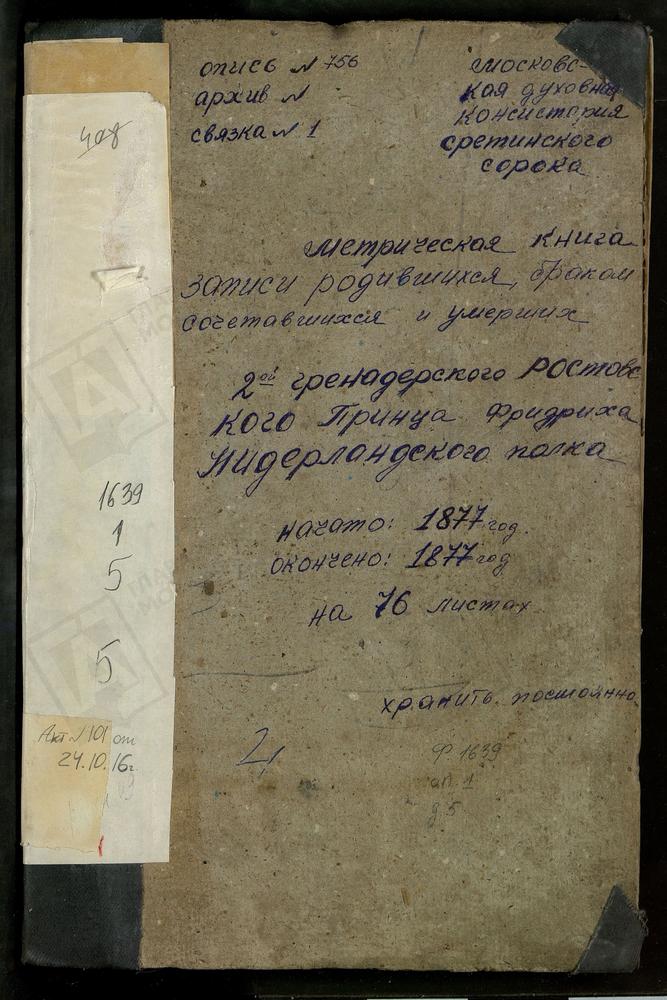 опись N 756
архив N
связка N 1
Московс-
кая духовная
консистория
сретинского
сорока
метрическая книга
записи родившихся, браком
сочетавшихся и умерших
2ой гренадерского Ростовс
кого Принца Фридриха
Нидерландского полка
начато: 1877 год.
окончено: 1877 год
на 76 листах
хранить постоянно.
Ф 1639
оп. 1
д 5
408
1639
1
5
5
Акт N 101 от
24.10.16г.